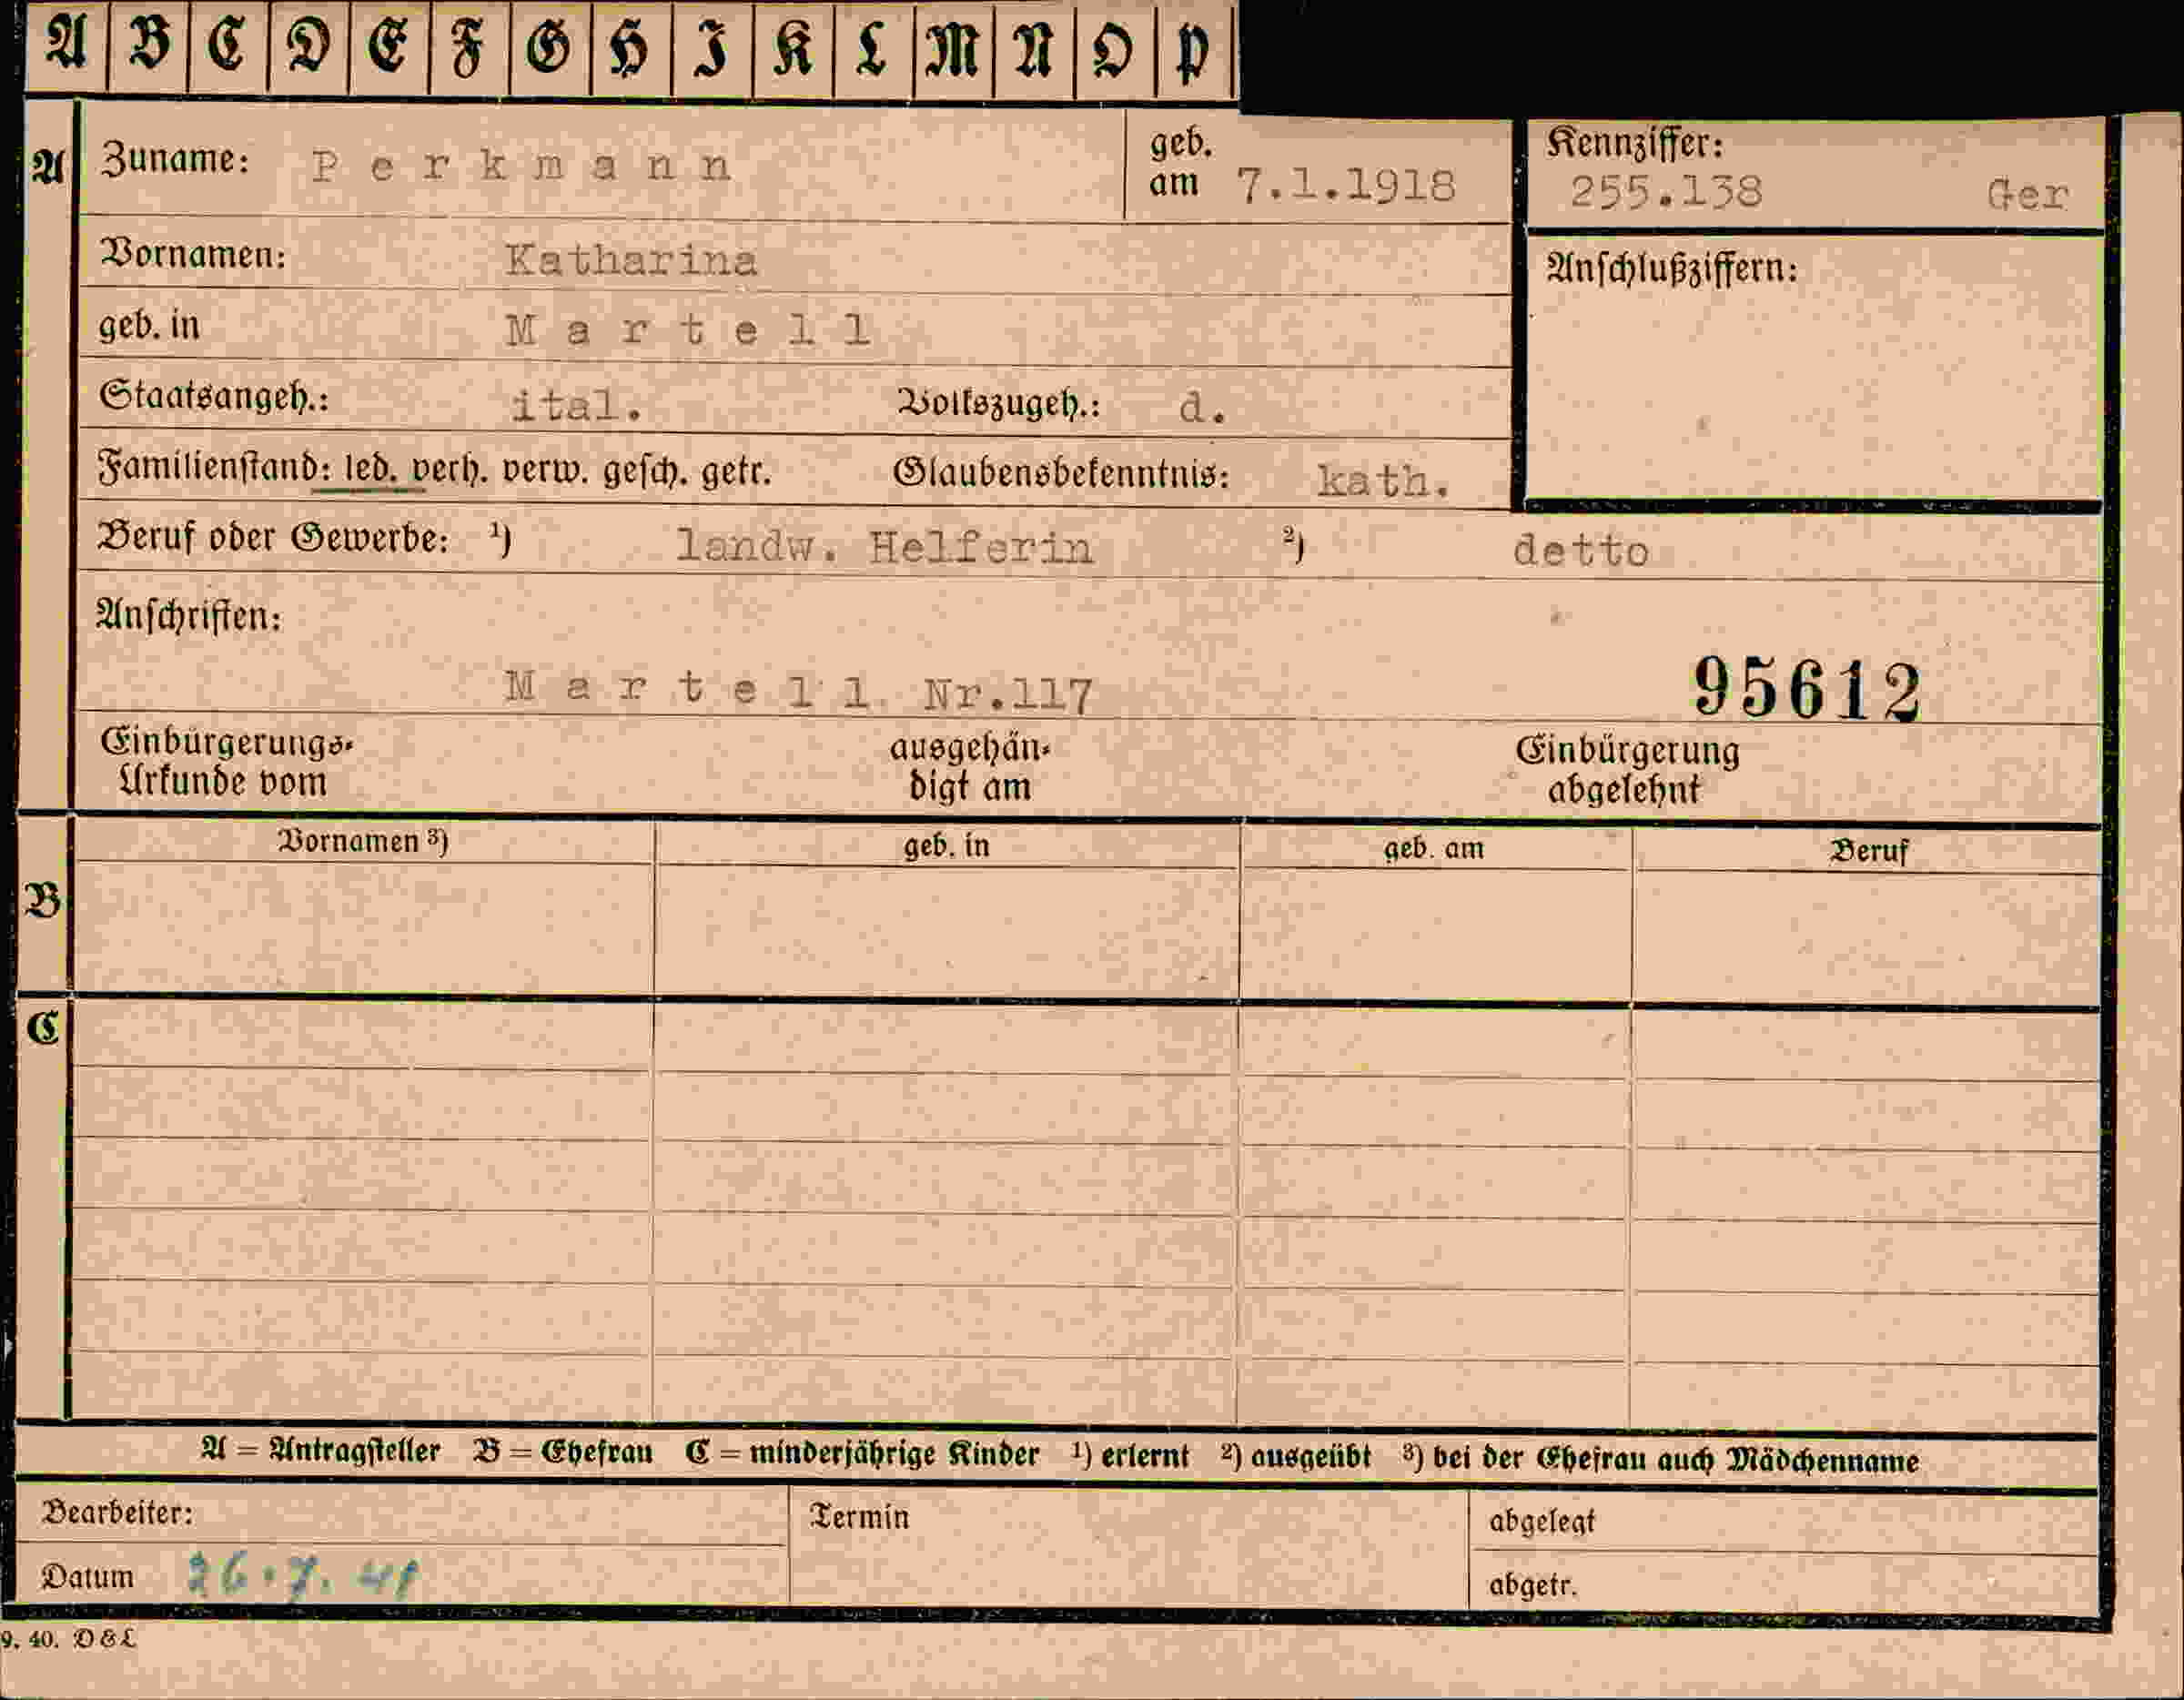 A B C D E F G H I K L M N O P
A Zuname: Perkmann geb. am 7.1.1918 Kennziffer: 255.138 Ger
Vornamen: Katharina Anschlußziffern:
geb. in Martell
Staatsangeh.: ital. Volkszugeh.: d.
Familienstand: led. verh. verw. gesch. getr. Glaubensbekenntnis: kath.
Beruf oder Gewerbe: ¹) landw. Helferin ²) detto
Anschriften:
Martell Nr.117 95612
Einbürgerungs- ausgehän- Einbürgerung
Urkunde vom digt am abgelehnt
Vornamen ³) geb. in geb. am Beruf
B
C
A = Antragsteller B = Ehefrau C = minderjährige Kinder ¹) erlernt ²) ausgeübt ³) bei der Ehefrau auch Mädchenname
Bearbeiter: Termin abgelegt
Datum 26.7.41 abgetr.
9. 40. D & L